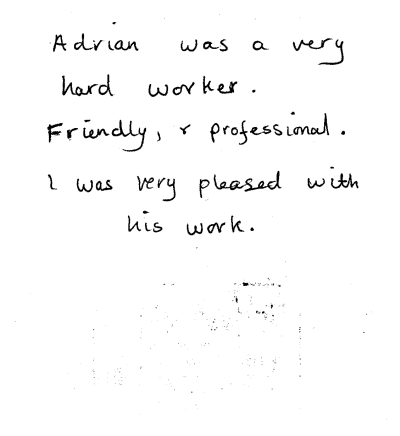 Adrian was a very
hard worker.
Friendly, & professional.
I was very pleased with
his work.